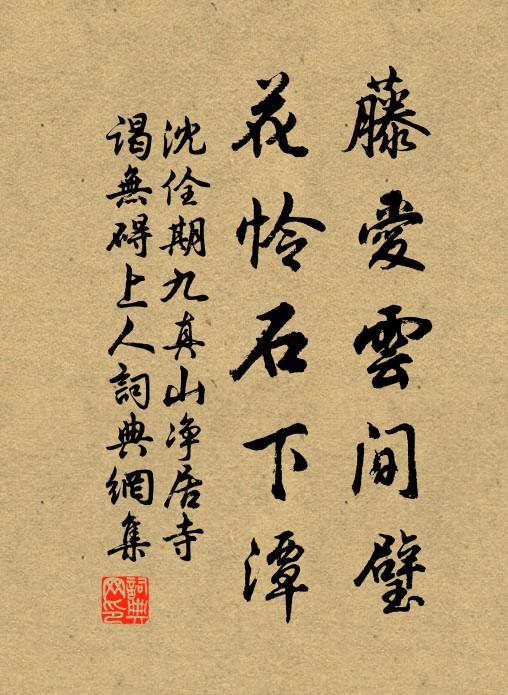 藤愛雲間璧
花怜石下潭
沈佺期九真山净居寺
謁無碍上人詞典網集
詞典网印